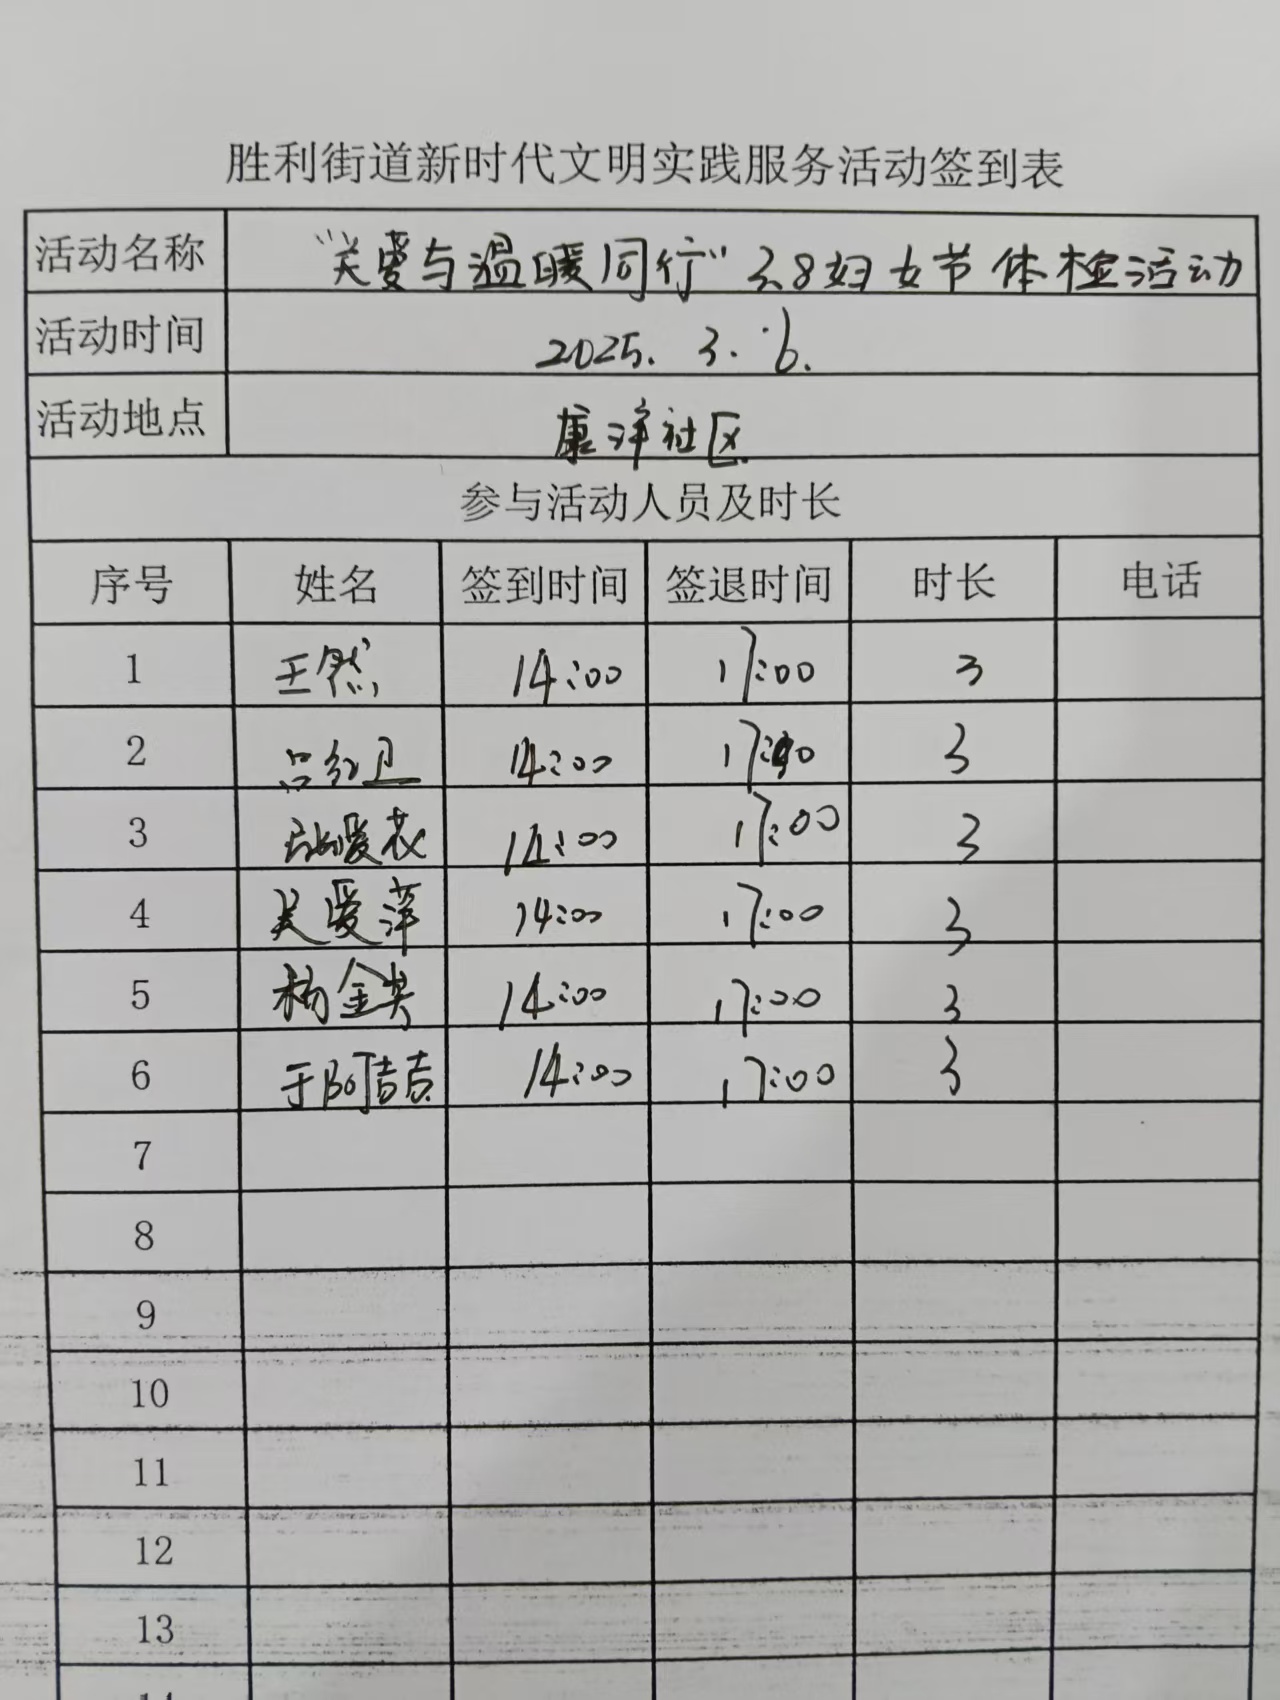 胜利街道新时代文明实践服务活动签到表
活动名称 "关爱与温暖同行"三8妇女节体检活动
活动时间 2025. 3. 6.
活动地点 康洋社区
参与活动人员及时长
序号 姓名 签到时间 签退时间 时长 电话
1 王然 14:00 17:00 3
2 吕红卫 14:00 17:00 3
3 张爱花 14:00 17:00 3
4 吴爱萍 14:00 17:00 3
5 杨金英 14:00 17:00 3
6 于阿喆 14:00 17:00 3
7
8
9
10
11
12
13